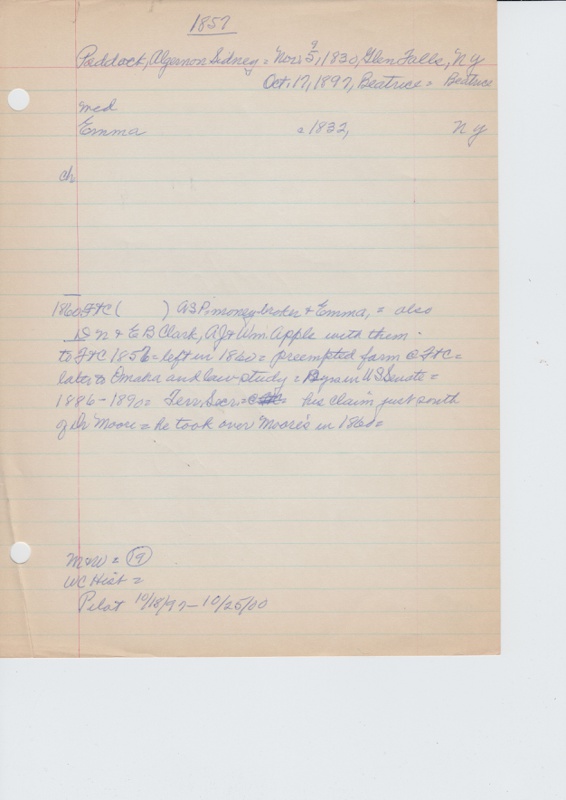 1857
Paddock, Algernon Sidney = Nov 9, 1830, Glen Falls, N Y
Oct. 17, 1897, Beatrice = Beatrice
med
Emma a 1832, N Y
ch
1860 FtC ( ) ASP, moneybroker & Emma, = also
D N & E B Clark, AJ & Wm. Apple with them
to FtC 1857 = left in 1860 = preempted farm @ FtC =
later to Omaha and law study = yrs in US Senate =
1886-1890 = Terr. Secr = his claim just south
of Dr Moore = he took over Moore's in 1860 =
M&W = 19
WC Hist =
Pilot 10/18/97 - 10/25/00